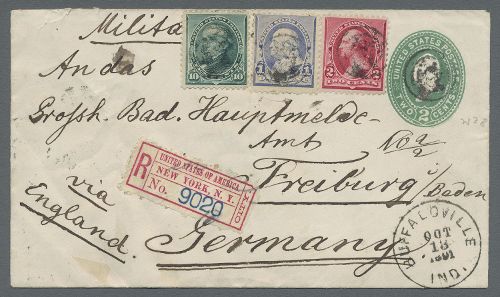 Milita
10
10
1
1
2
2
UNITED STATES POST
TWO 2 CENTS
An das
Grossh. Bad. Hauptmelde-
Amt
No 9/2
Freiburg i/Baden
R
UNITED STATES OF AMERICA
NEW YORK, N. Y.
No. 9029
via
England.
Germany.
BUFFALOVILLE
OCT
13
1891
IND.